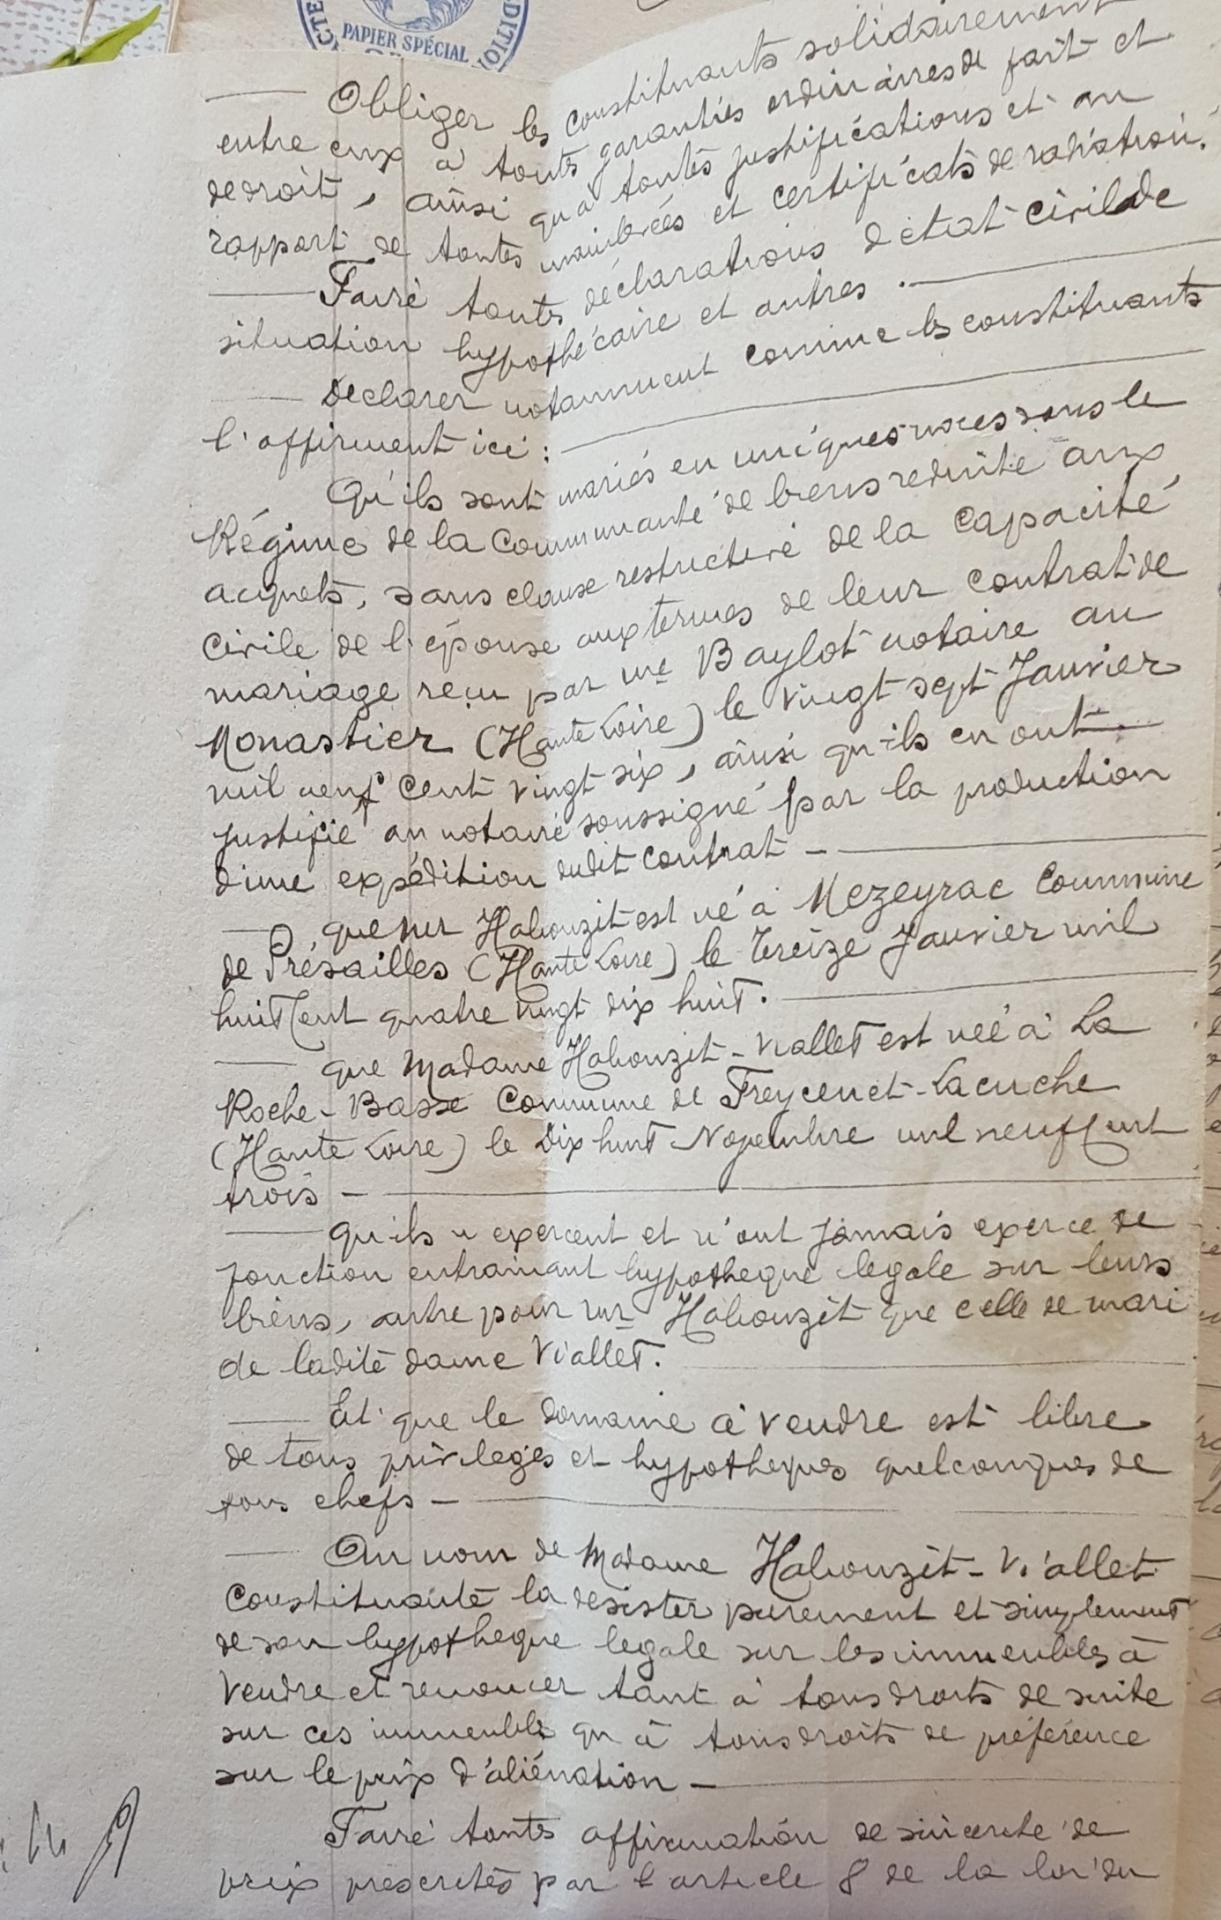 PAPIER SPÉCIAL
Obliger les constituants solidairement
entre eux à toutes garanties ordinaires de fait et
de droit, ainsi qu'à toutes justifications et au
rapport de toutes mainlevées et certificats de radiation.
Faire toutes déclarations d'état civil de
situation hypothécaire et autres.
Déclarer notamment comme les constituants
l'affirment ici :
Qu'ils sont mariés en uniques noces sous le
Régime de la Communauté de biens reduite aux
acquets, sans clause restrictive de la capacité
civile de l'épouse aux termes de leur contrat de
mariage reçu par Me Baylot notaire au
Monastier (Haute Loire) le vingt sept Janvier
mil neuf cent vingt six, ainsi qu'ils en ont
justifié au notaire soussigné par la production
d'une expédition dudit contrat -
que Mr Habouzit est né à Mezeyrac Commune
de Présailles (Haute Loire) le treize Janvier mil
huit Cent quatre vingt dix huit.
que Madame Habouzit - Viallet est née à La
Roche - Basse Commune de Freycenet - Lacuche
(Haute Loire) le dix huit Novembre mil neuf Cent
trois -
qu'ils n'exercent et n'ont jamais exercé de
fonction entrainant hypothèque legale sur leurs
biens, autre pour Mr Habouzit que celle de mari
de ladite dame Viallet.
Et que le domaine à vendre est libre
de tous privileges et hypotheques quelconques de
tous chefs -
Au nom de Madame Habouzit - Viallet
Constituante la desister purement et simplement
de son hypotheque legale sur les immeubles à
vendre et renoncer tant à tous droits de suite
sur ces immeubles qu'à tous droits de préférence
sur le prix d'aliénation -
Faire toutes affirmation de sincerité de
prix prescrites par l'article 8 de la loi du